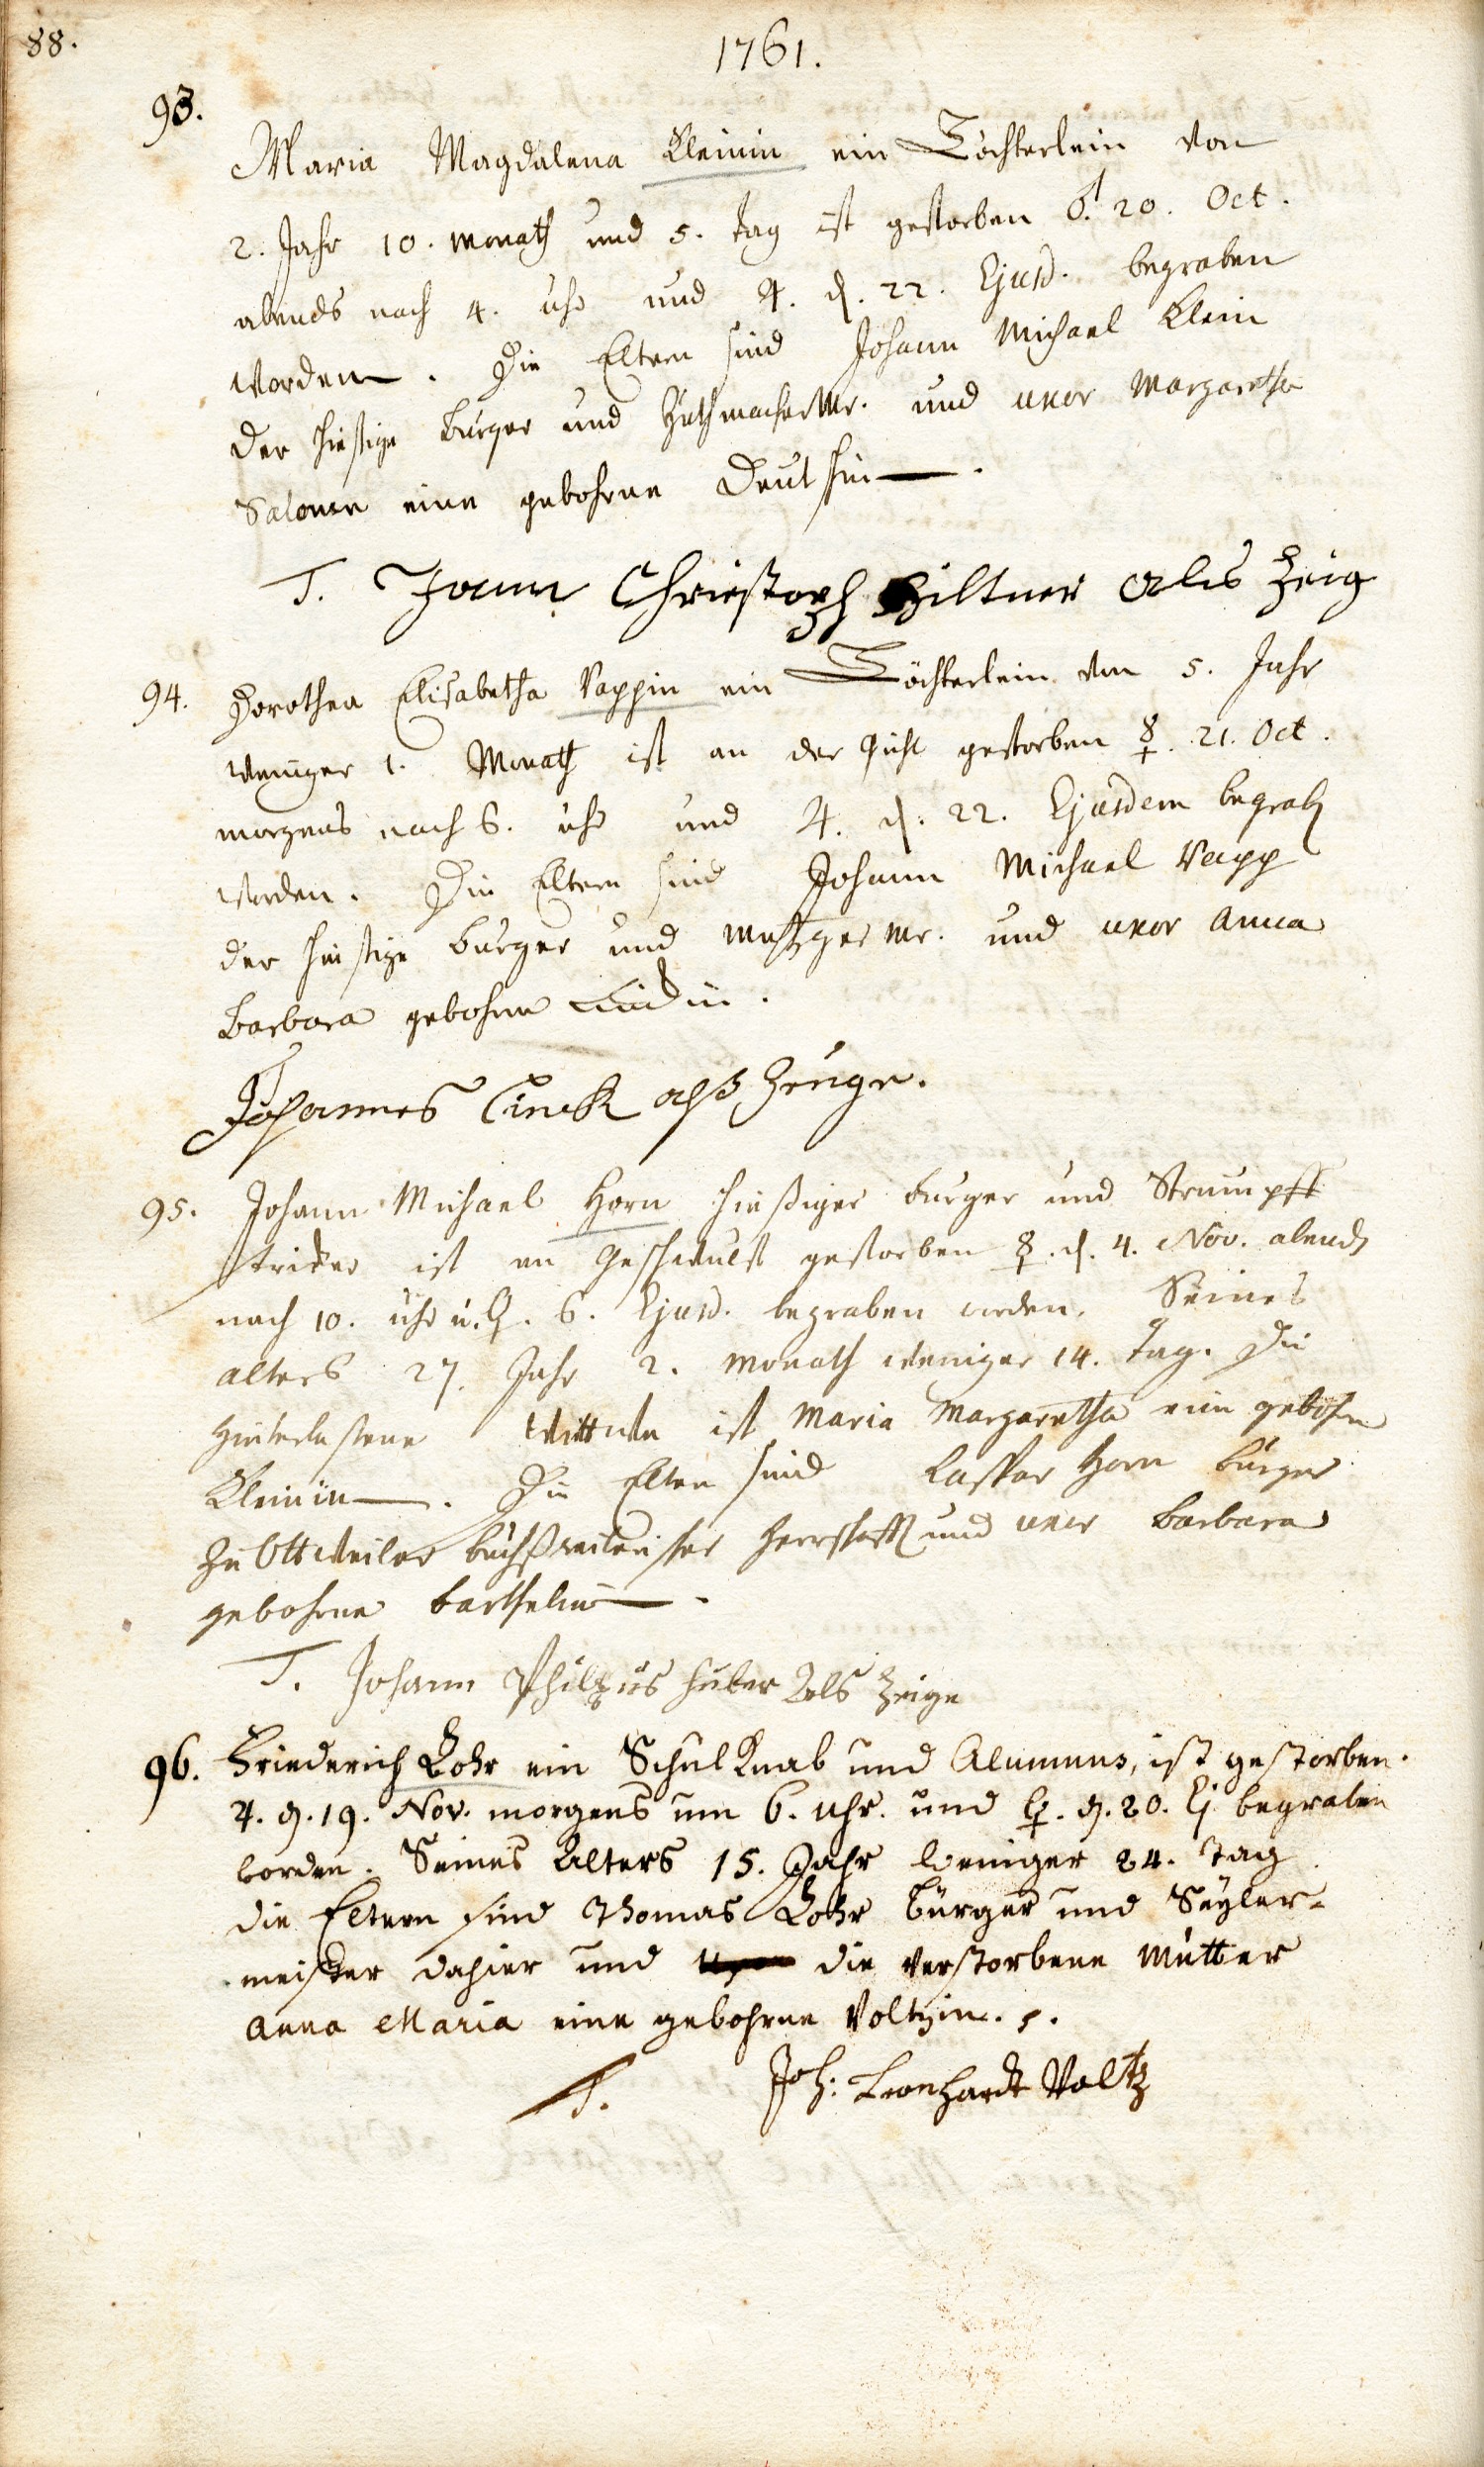 88.
1761.
93.
Maria Magdalena Kleinin ein Töchterlein von
2. Jahr 10. Monath und 5. tag ist gestorben ♂ 20. Oct.
abends nach 4. uhr und ♃. d. 22. Ejusd. begraben
worden. Die Eltern sind Johann Michael Klein
der hiesige burger und Huthmacher Mr. und uxor Margaretha
Salome eine gebohrne Deutschin.
T. Hann Christoph Hiltner als Zeig
94. Dorothea Elisabetha Rappin ein Töchterlein von 5. Jahr
weniger 1. Monath ist an der Gicht gestorben ☿. 21. Oct.
morgens nach 6. uhr und ♃. d. 22. Ejusdem begrab
worden. Die Eltern sind Johann Michael Rapp
der hiesige burger und Metzger Mr. und uxor Anna
Barbara gebohrne
Johannes Linck alß Zeuge.
95. Johann Michael Horn hießiger burger und Strumpff
stricker ist an Geschwulst gestorben ☿. d. 4. Nov. abends
nach 10. uhr u. 6. Ejusd. begraben worden. Seines
alters 27. Jahr 2. Monath weniger 14. Tag. Die
hinterlassene Wittwe ist Maria Margaretha eine gebohrne
Kleinin. Die Eltern sind Caspar Horn burger
zu Ottweiler buchßweilerischer Herrschafft und uxor Barbara
gebohrne Barthelin.
T. Johann Philpus Huber Als Zeige
96. Friederich Lohr ein Schul Knab und Alumnus, ist gestorben.
♃. d. 19. Nov. morgens um 6. uhr. und ♀. d. 20. Ej begraben
worden. Seines Alters 15. Jahr weniger 24. tag
die Eltern sind Thomas Lohr burger und Seyler-
meister dahier und die verstorbene Mutter
Anna Maria eine gebohrne Voltzin.
T. Joh: Leonhardt Voltz